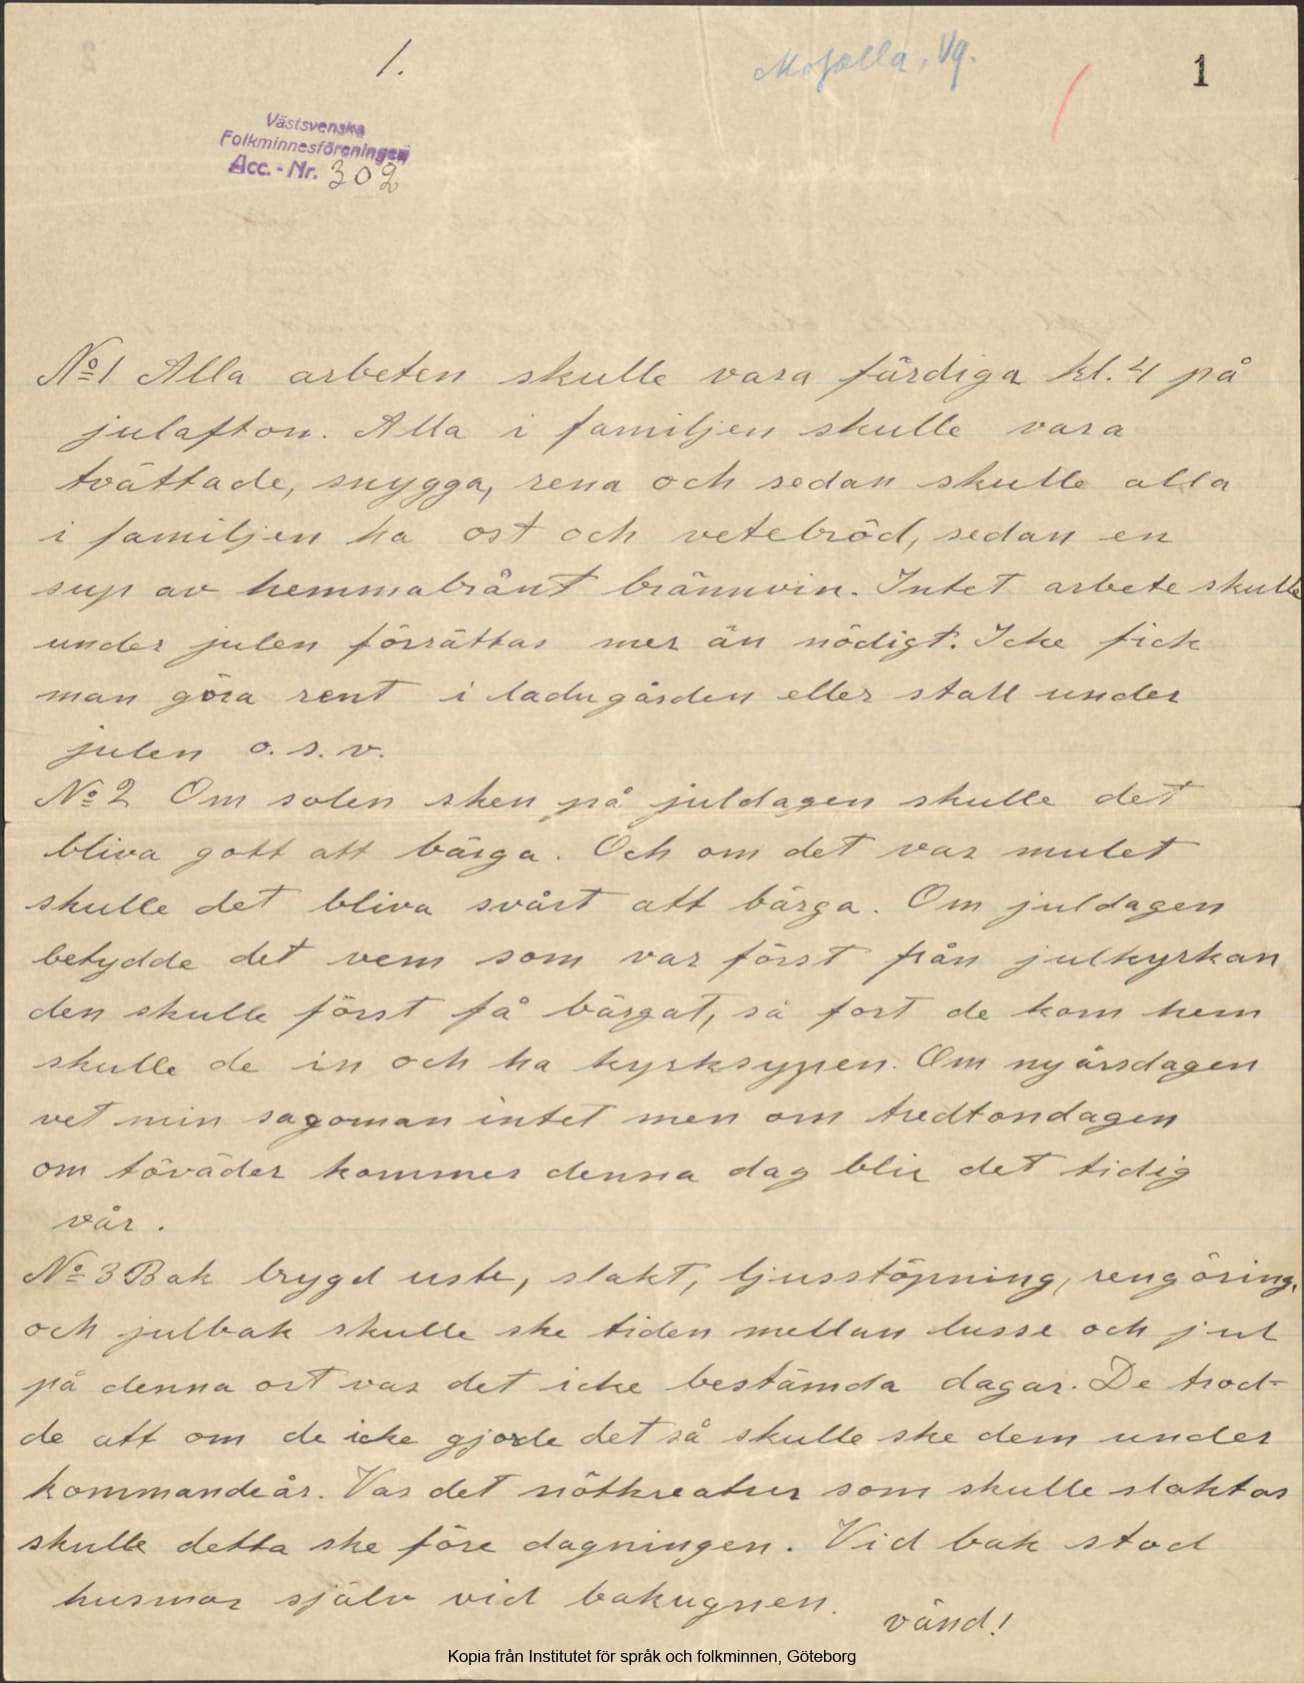 1.
Mofalla, Vg.
1
Västsvenska
Folkminnesföreningen
Acc. - Nr. 302
No 1 Alla arbeten skulle vara färdiga kl. 4 på
julafton. Alla i familjen skulle vara
tvättade, snygga, rena och sedan skulle alla
i familjen ha ost och vetebröd, sedan en
sup av hemmabränt brännvin. Intet arbete skulle
under julen förrättas mer än nödigt. Icke fick
man göra rent i ladugården eller stall under
julen o. s. v.
No 2 Om solen sken på juldagen skulle det
bliva gott att bärga. Och om det var mulet
skulle det bliva svårt att bärga. Om juldagen
betydde det vem som var först från julkyrkan
den skulle först få bärgat, så fort de kom hem
skulle de in och ha kyrksypen. Om nyårsdagen
vet min sagoman intet men om tredtondagen
om töväder kommer denna dag blir det tidig
vår.
No 3 Bak brygd uste, slakt, ljusstöpning, rengöring,
och julbak skulle ske tiden mellan lusse och jul
på denna ort var det icke bestämda dagar. De trod-
de att om de icke gjorde det så skulle ske dem under
kommande år. Var det nötkreatur som skulle slaktas
skulle detta ske före dagningen. Vid bak stod
husmor själv vid bakugnen.
vänd!
Kopia från Institutet för språk och folkminnen, Göteborg